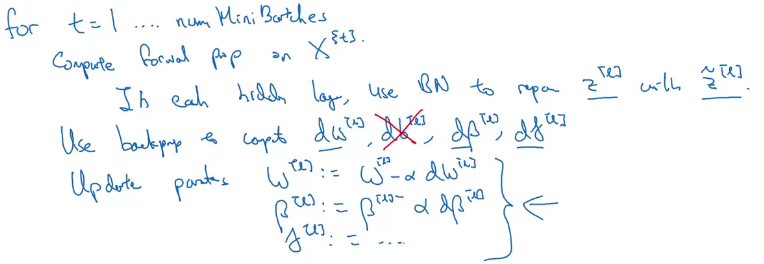 for t = 1 .... num Mini Batches
Compute forward prop on X^{t}.
In each hidden lay, use BN to repon z^[l] with z̃^[l].
Use backprop to compt dw^[l], db^[l], dβ^[l], dγ^[l]
Update partes w^[l] := w^[l] - α dw^[l]
β^[l] := β^[l] - α dβ^[l]
γ^[l] := ...